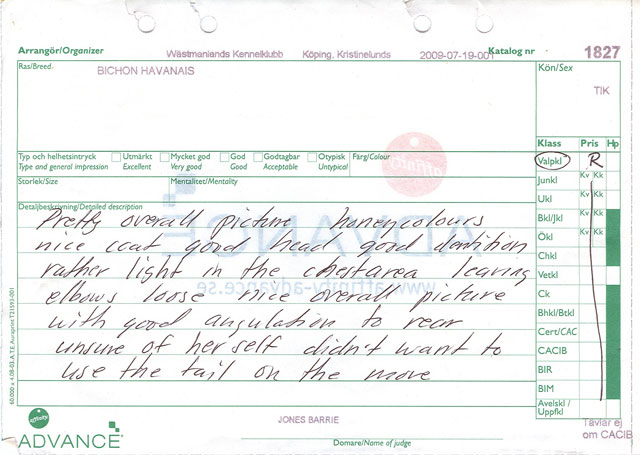 Arrangör/Organizer Västmanlands Kennelklubb Köping, Kristinelunds 2009-07-19-001 Katalog nr 1827
Ras/Breed BICHON HAVANAIS
Kön/Sex
TIK
Klass Pris Hp
Typ och helhetsintryck Utmärkt Mycket god God Godtagbar Otypisk Färg/Colour
Type and general impression Excellent Very good Good Acceptable Untypical
Valpkl R
Storlek/Size Mentalitet/Mentality
Junkl Kv Kk
Ukl Kv Kk
Bkl/Jkl Kv Kk
Ökl Kv Kk
Chkl
Vetkl
Ck
Bhkl/Btkl
Cert/CAC
CACIB
BIR
BIM
Avelskl /
Uppfkl
Detaljbeskrivning/Detailed description
Pretty overall picture honeycolours
nice coat good head good dentition
rather light in the chestarea leaving
elbows loose nice overall picture
with good angulation to rear
unsure of her self didn't want to
use the tail on the move
affinity
ADVANCE
www.affinity-advance.se
affinity
ADVANCE
JONES BARRIE
Domare/Name of judge
Tävlar ej
om CACIB